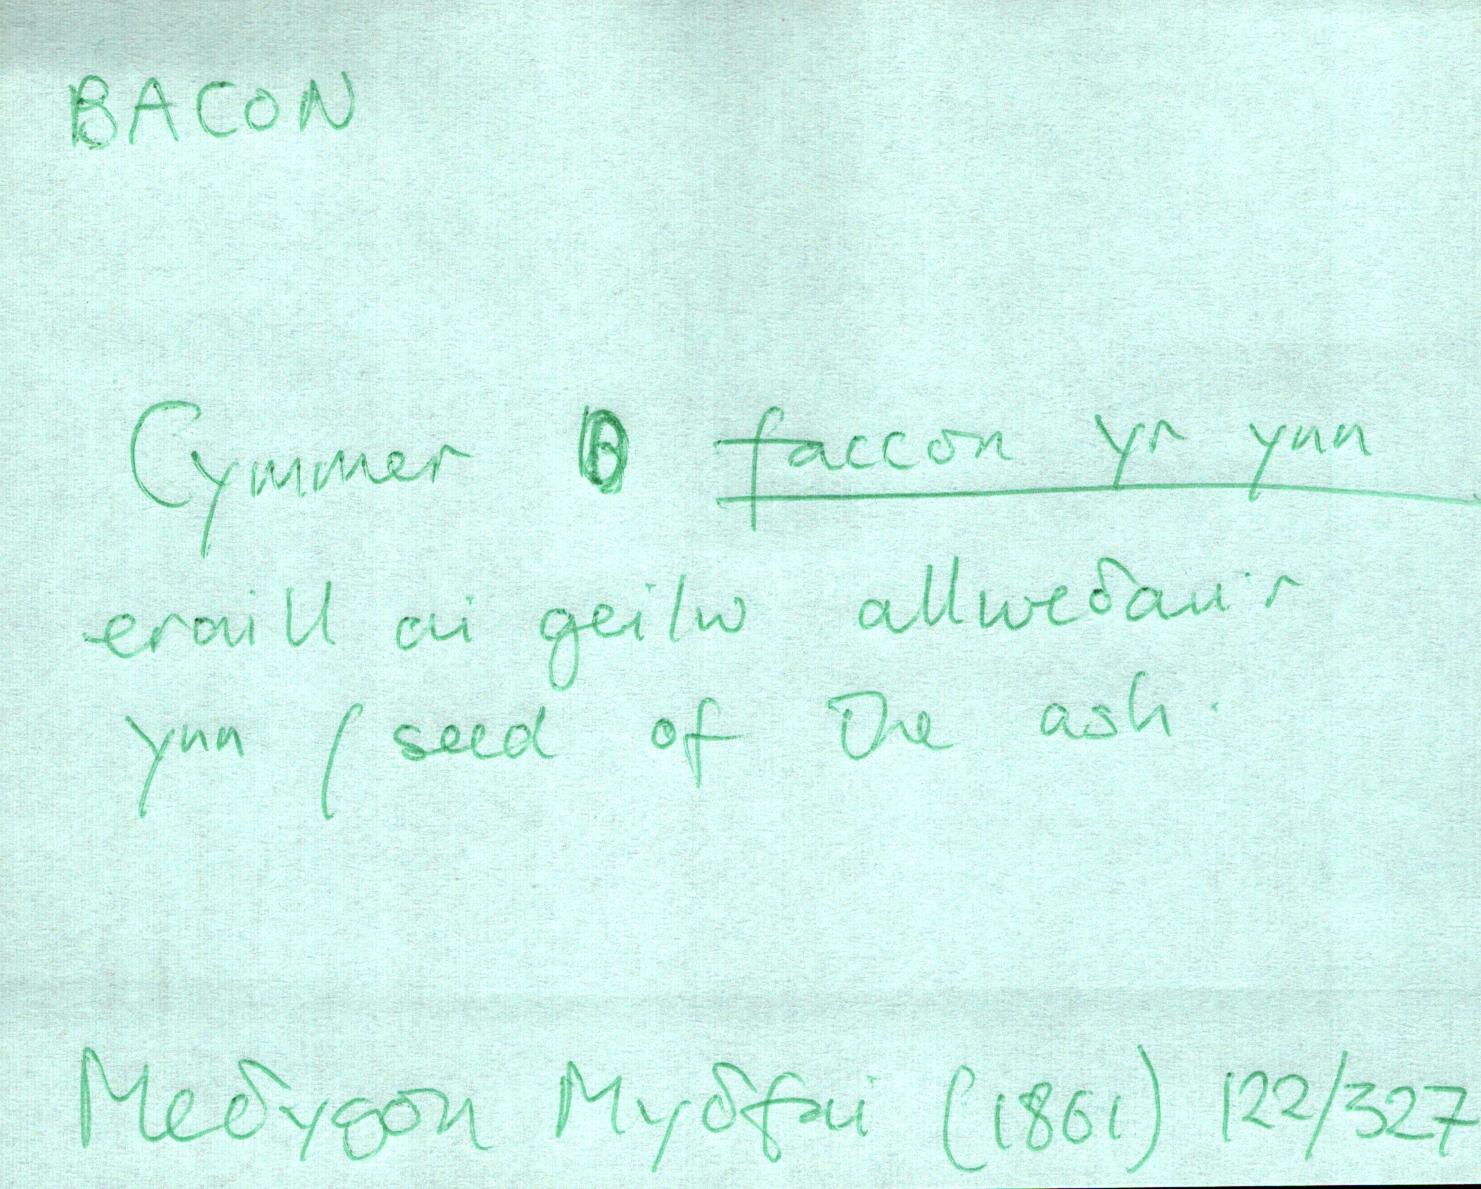 BACON
Cymmer faccon yr ynn
eraill ai geilw allweδau'r
ynn / seed of the ash.
Meδygon Myδfai (1861) 122/327